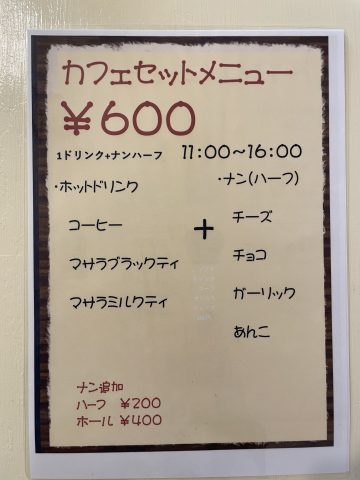 カフェセットメニュー
¥600
1ドリンク+ナンハーフ 11:00~16:00
・ホットドリンク
コーヒー
マサラブラックティ
マサラミルクティ
+
・ナン(ハーフ)
チーズ
チョコ
ガーリック
あんこ
ナン追加
ハーフ ¥200
ホール ¥400